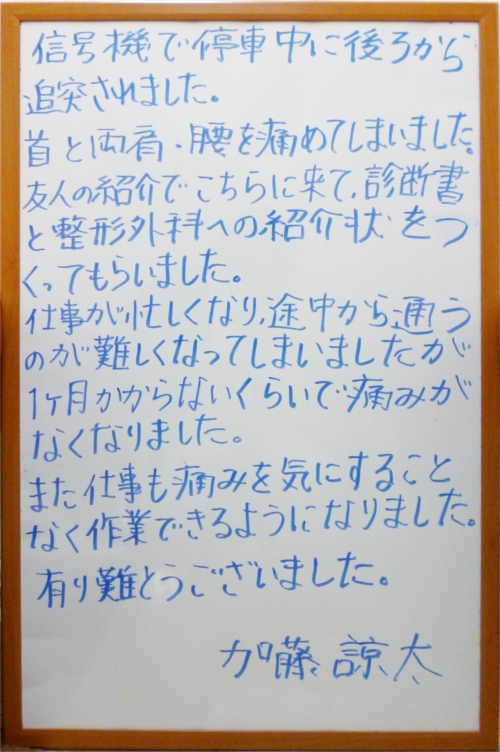 信号機で停車中に後ろから
追突されました。
首と両肩・腰を痛めてしまいました。
友人の紹介でこちらに来て、診断書
と整形外科への紹介状をつ
くってもらいました。
仕事が忙しくなり、途中から通う
のが難しくなってしまいましたが
1ヶ月かからないくらいで痛みが
なくなりました。
また仕事も痛みを気にすること
なく作業できるようになりました。
有り難とうございました。
加藤 諒太